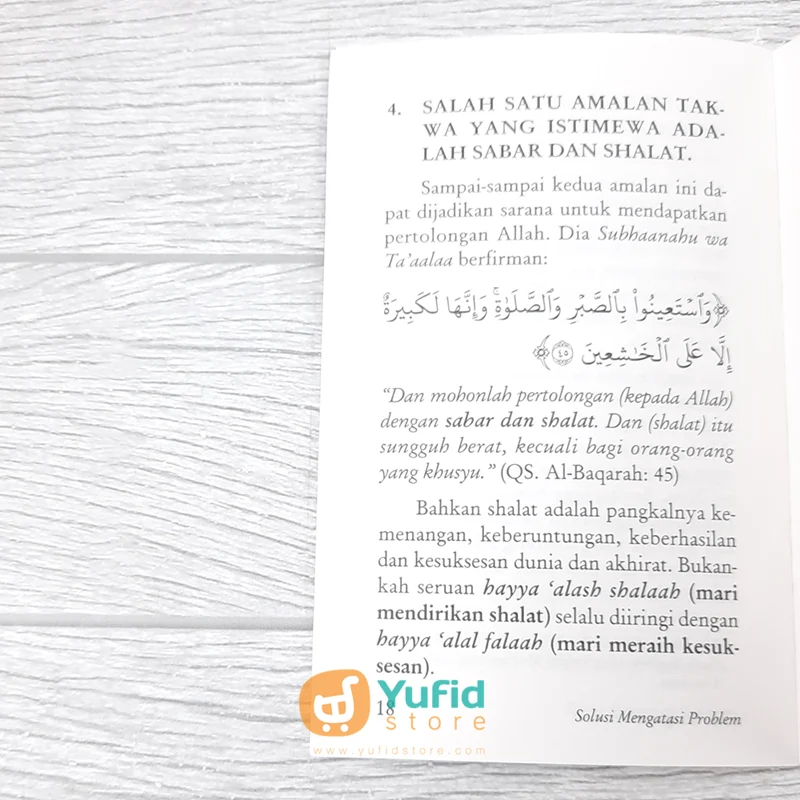 4. SALAH SATU AMALAN TAK-
WA YANG ISTIMEWA ADA-
LAH SABAR DAN SHALAT.
Sampai-sampai kedua amalan ini da-
pat dijadikan sarana untuk mendapatkan
pertolongan Allah. Dia Subhaanahu wa
Ta'aalaa berfirman:
﴿وَٱسْتَعِينُوا۟ بِٱلصَّبْرِ وَٱلصَّلَوٰةِ ۚ وَإِنَّهَا لَكَبِيرَةٌ
إِلَّا عَلَى ٱلْخَـٰشِعِينَ ٤٥﴾
“Dan mohonlah pertolongan (kepada Allah)
dengan sabar dan shalat. Dan (shalat) itu
sungguh berat, kecuali bagi orang-orang
yang khusyu.” (QS. Al-Baqarah: 45)
Bahkan shalat adalah pangkalnya ke-
menangan, keberuntungan, keberhasilan
dan kesuksesan dunia dan akhirat. Bukan-
kah seruan hayya ‘alash shalaah (mari
mendirikan shalat) selalu diiringi dengan
hayya ‘alal falaah (mari meraih kesuk-
sesan).
18
Solusi Mengatasi Problem
Yufid
store
www.yufidstore.com